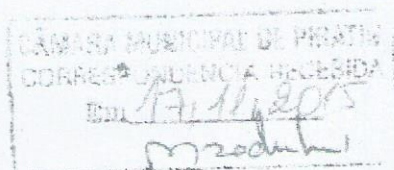 CÂMARA MUNICIPAL DE PIRATINI
CORRESPONDÊNCIA RECEBIDA
Em 17, 11, 2015